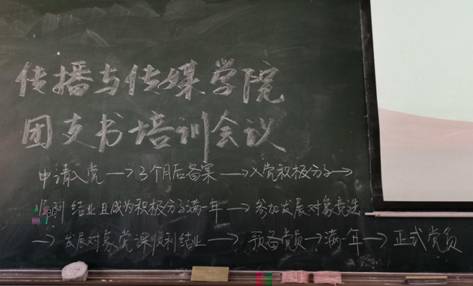 传播与传媒学院
团支书培训会议
申请入党→3个月后备案→入党积极分子→
顺利结业且成为积极分子满一年→参加发展对象竞选
→发展对象党课顺利结业→预备党员→满一年→正式党员